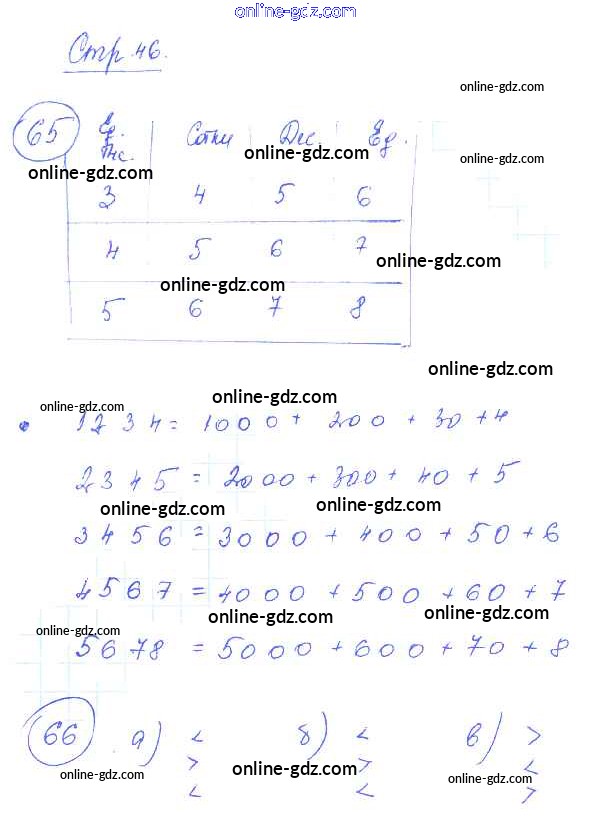 online-gdz.com
Стр 46.
online-gdz.com
65 Ед. тыс. Сотни Дес. Ед.
online-gdz.com online-gdz.com online-gdz.com
3 4 5 6
4 5 6 7
online-gdz.com
online-gdz.com
5 6 7 8
online-gdz.com
online-gdz.com
online-gdz.com
1234 = 1000 + 200 + 30 + 4
2345 = 2000 + 300 + 40 + 5
online-gdz.com online-gdz.com
3456 = 3000 + 400 + 50 + 6
4567 = 4000 + 500 + 60 + 7
online-gdz.com online-gdz.com
online-gdz.com
5678 = 5000 + 600 + 70 + 8
66 а) < б) < в) >
> > <
online-gdz.com online-gdz.com online-gdz.com
< < >